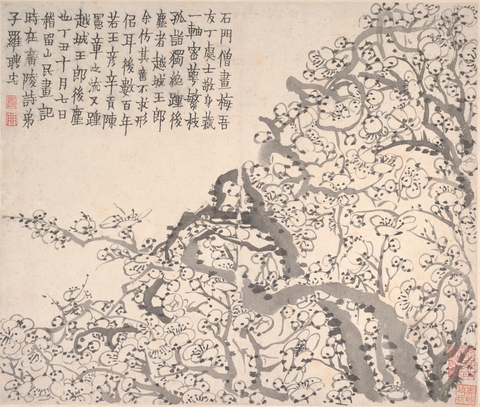 石門僧畫梅吾
友丁處士敬身藏
一軸密蕚繁枝
孤詣獨絕踵後
塵者越城王郎
余仿其意不求形
侣耳後數百年
若王彥辛貢陳
憲章之流又踵
越城王郎後塵
也丁丑十月七日
稽留山民畫記
時在廣陵詩弟
子羅聘志